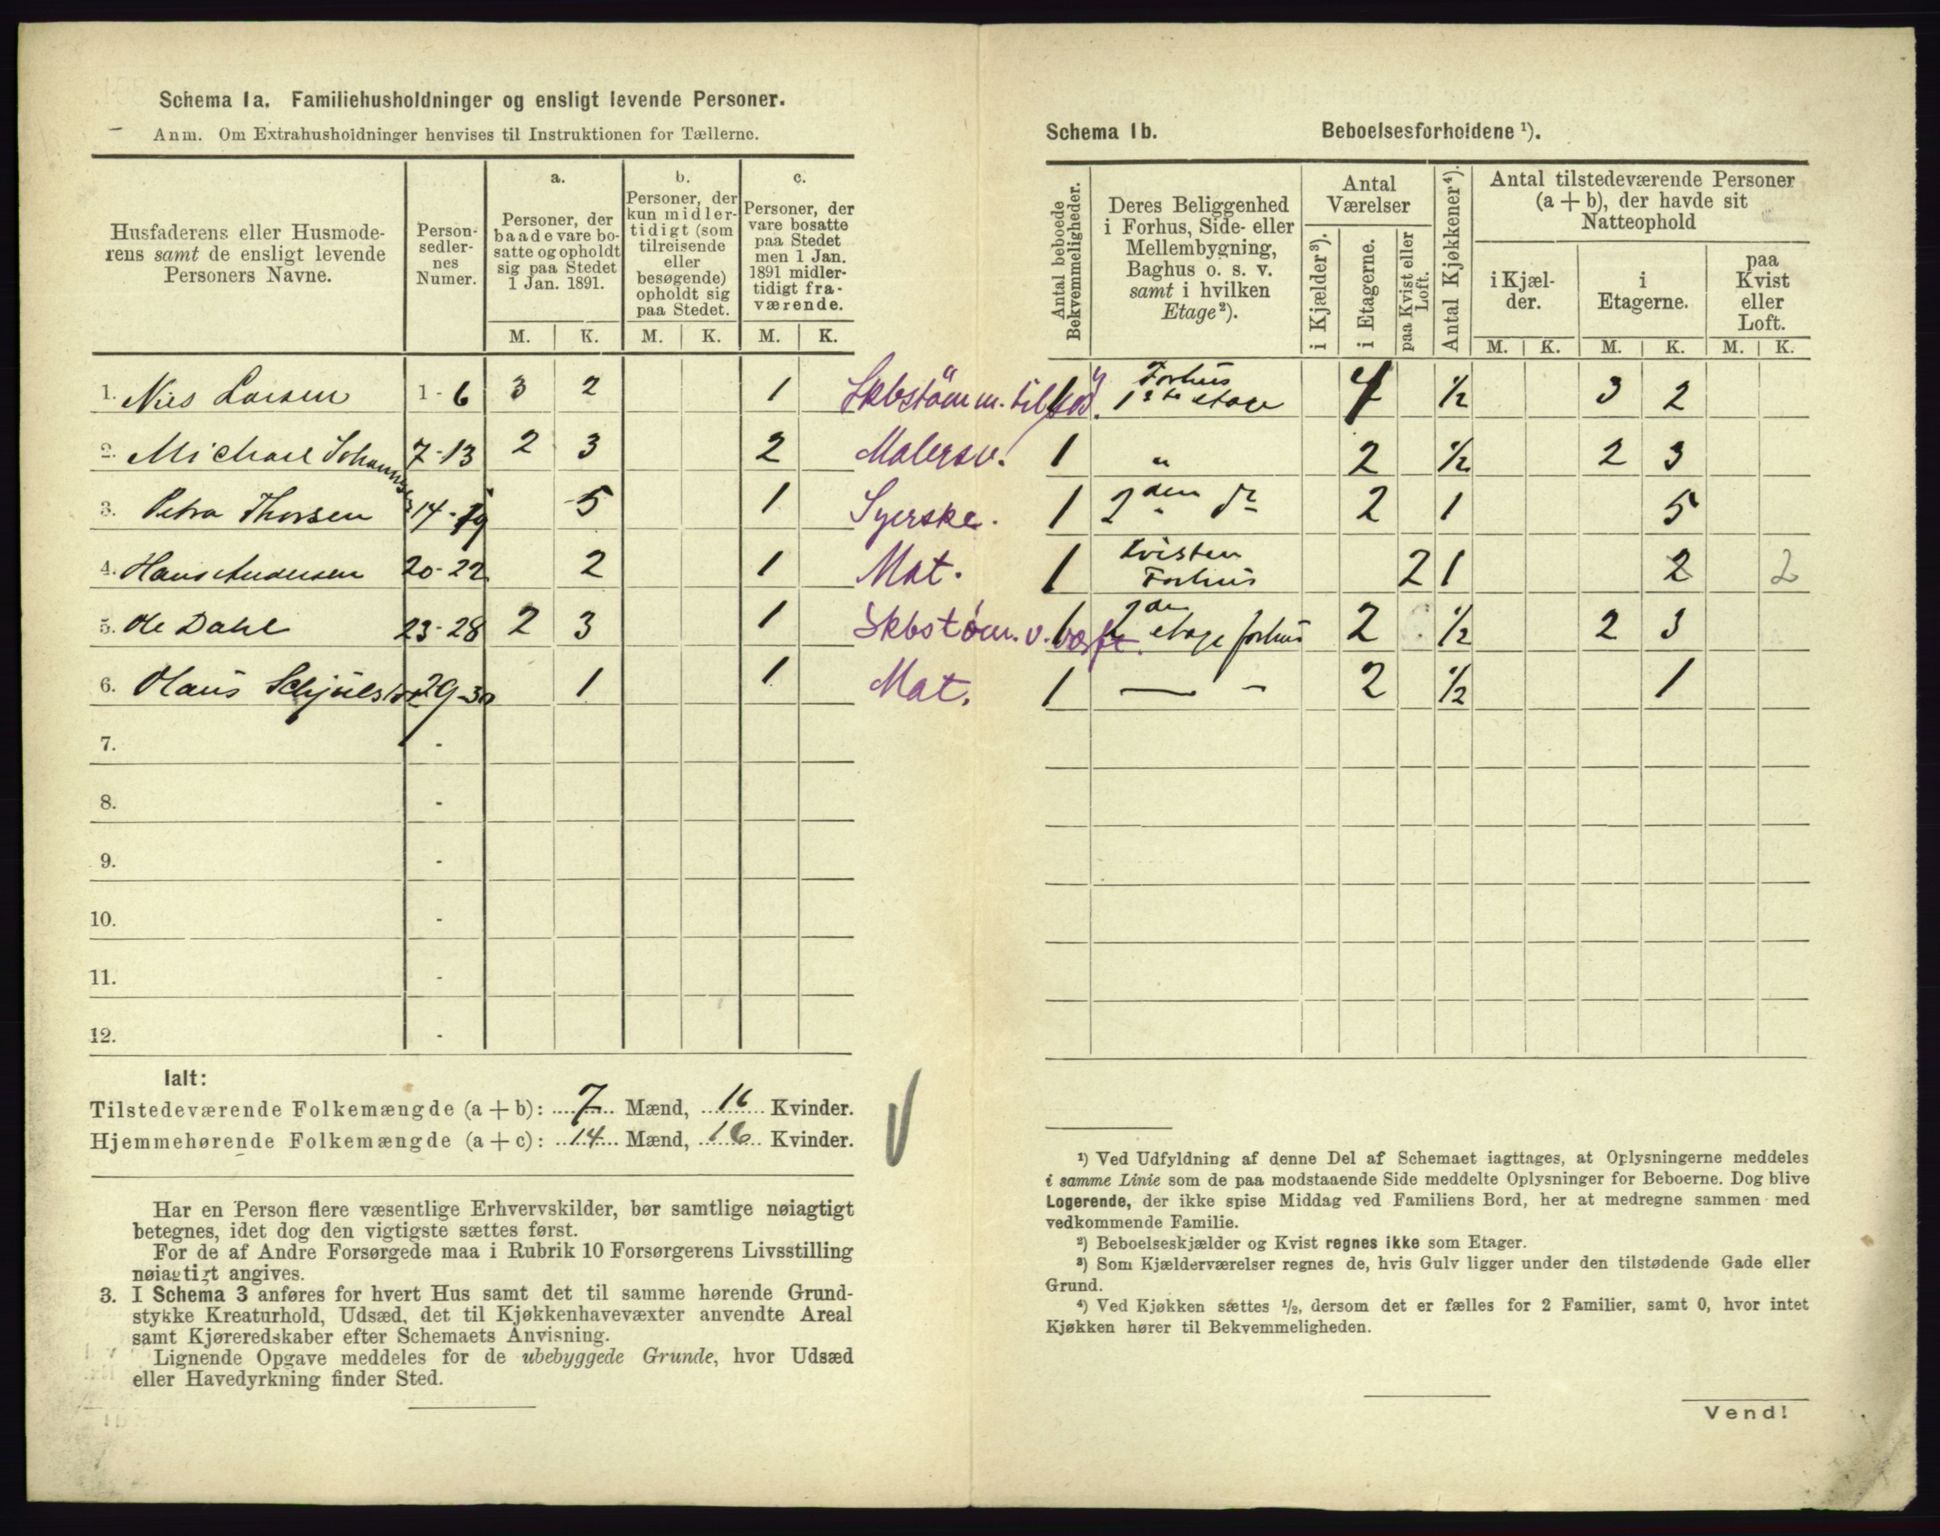 Schema 1a. Familiehusholdninger og ensligt levende Personer.
Anm. Om Extrahusholdninger henvises til Instruktionen for Tællerne.
Husfaderens eller Husmoderens samt de ensligt levende Personers Navne.
Personsedlernes Numer.
a. Personer, der baade vare bosatte og opholdt sig paa Stedet 1 Jan. 1891.
b. Personer, der kun midlertidigt (som tilreisende eller besøgende) opholdt sig paa Stedet.
c. Personer, der vare bosatte paa Stedet men 1 Jan. 1891 midlertidigt fraværende.
M. K. M. K. M. K.
1. Nils Larsen 1-6 3 2 1 Skbstömm. til
2. Michael Johannsen 7-13 2 3 2 Malersv.
3. Petra Thorsen 14-19 5 1 Syerske.
4. Hans Andersen 20-22 2 1 Mat.
5. Ole Dahl 23-28 2 3 1 Skbstøm. v. værft.
6. Hans Schjuelsen 29-30 1 1 Mat.
7. -
8. -
9. -
10. -
11. -
12. -
Ialt:
Tilstedeværende Folkemængde (a + b): 7 Mænd, 16 Kvinder.
Hjemmehørende Folkemængde (a + c): 14 Mænd, 16 Kvinder.
Har en Person flere væsentlige Erhvervskilder, bør samtlige nøiagtigt
betegnes, idet dog den vigtigste sættes først.
For de af Andre Forsørgede maa i Rubrik 10 Forsørgerens Livsstilling
nøiagtigt angives.
3. I Schema 3 anføres for hvert Hus samt det til samme hørende Grund-
stykke Kreaturhold, Udsæd, det til Kjøkkenhavevæxter anvendte Areal
samt Kjøreredskaber efter Schemaets Anvisning.
Lignende Opgave meddeles for de ubebyggede Grunde, hvor Udsæd
eller Havedyrkning finder Sted.
Schema 1b. Beboelsesforholdene ¹).
Antal beboede Bekvemmeligheder.
Deres Beliggenhed i Forhus, Side- eller Mellembygning, Baghus o. s. v. samt i hvilken Etage²).
Antal Værelser
i Kjælder³). i Etagerne. paa Kvist eller Loft.
Antal Kjøkkener⁴).
Antal tilstedeværende Personer (a + b), der havde sit Natteophold
i Kjælder. i Etagerne. paa Kvist eller Loft.
M. K. M. K. M. K.
1 Forhus 1ste etage 4 ½ 3 2
1 " 2 ½ 2 3
1 2den " do 2 1 5
1 Kvisten Forhus 2 1 2 2
1 2de etage forhus 2 ½ 2 3
1 — - 2 ½ 1
¹) Ved Udfyldning af denne Del af Schemaet iagttages, at Oplysningerne meddeles
i samme Linie som de paa modstaaende Side meddelte Oplysninger for Beboerne. Dog blive
Logerende, der ikke spise Middag ved Familiens Bord, her at medregne sammen med
vedkommende Familie.
²) Beboelseskjælder og Kvist regnes ikke som Etager.
³) Som Kjælderværelser regnes de, hvis Gulv ligger under den tilstødende Gade eller
Grund.
⁴) Ved Kjøkken sættes ½, dersom det er fælles for 2 Familier, samt 0, hvor intet
Kjøkken hører til Bekvemmeligheden.
Vend!